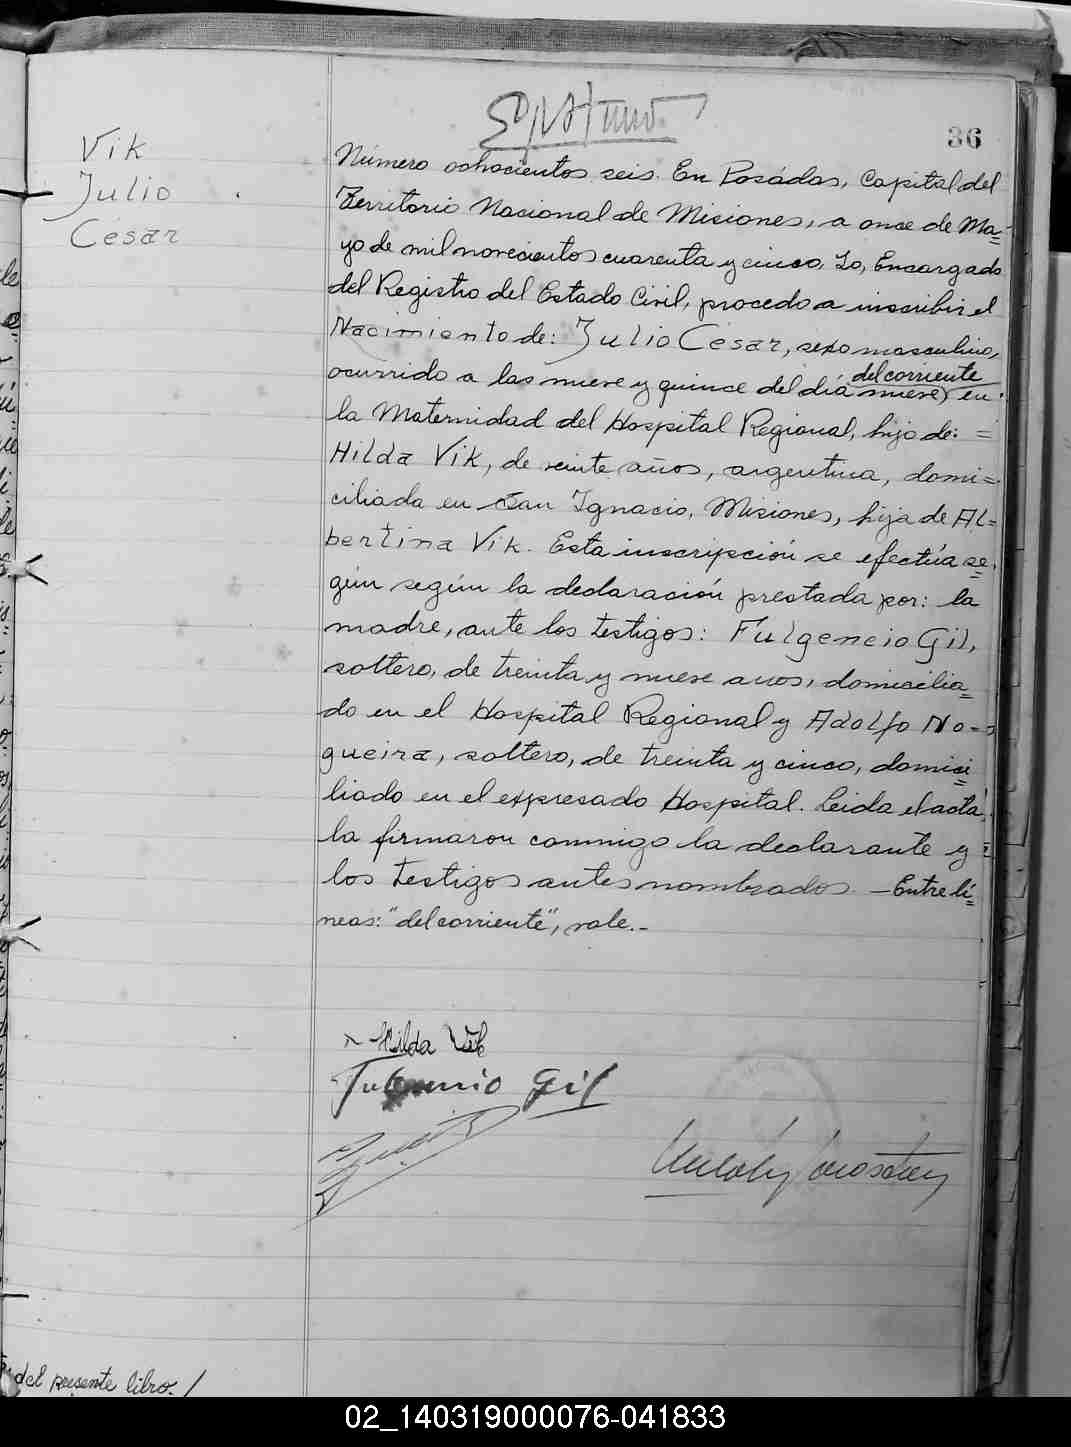 36
Vik
Julio
César
Número ochocientos seis. En Posadas, Capital del
Territorio Nacional de Misiones, a once de Ma=
yo de mil novecientos cuarenta y cinco, Yo, Encargado
del Registro del Estado Civil, procedo a inscribir el
Nacimiento de: Julio César, sexo masculino,
del corriente
ocurrido a las nueve y quince del día nueve) en
la Maternidad del Hospital Regional, hijo de: =
Hilda Vik, de veinte años, argentina, domi=
ciliada en San Ignacio, Misiones, hija de Al=
bertina Vik. Esta inscripción se efectúa se=
gún según la declaración prestada por: la
madre, ante los testigos: Fulgencio Gil,
soltero, de treinta y nueve años, domicilia=
do en el Hospital Regional y Adolfo No=
gueira, soltero, de treinta y cinco, domici=
liado en el expresado Hospital. Leida el acta,
la firmaron conmigo la declarante y =
los testigos antes nombrados. — Entre lí=
neas: "del corriente", vale.-
x Hilda Vik
Fulgencio Gil
del presente libro. /
02_140319000076-041833